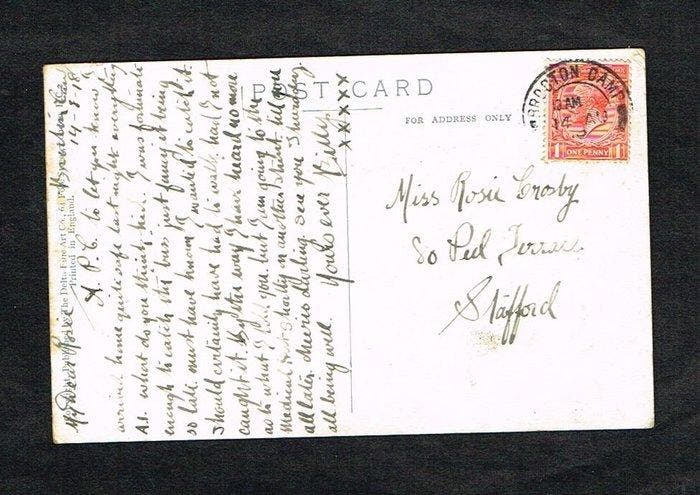 POST CARD
FOR ADDRESS ONLY
BROCTON CAMP
AM
14 AU
ONE PENNY
1 1
Miss Rosie Crosby
80 Peel Terrace
Stafford
The Delta Fine Art Co.,
Printed in England.
14-8-18
My Dear Rosie
A. P. C. to let you know I
arrived home quite safe last night everything
A1. what do you think, kid. I was fortunate
enough to catch the bus just fancy it being
so late, must have known I wanted to catch it.
I should certainly have had to walk had I not
caught it. By the way I have heard no more
as to what I told you, but I am going to the
Medical Insp. shortly in another I shall tell you
all later. Cheerio Darling. See you Thursday
all being well. Yours ever Billy.
XXXXX
XXXXX